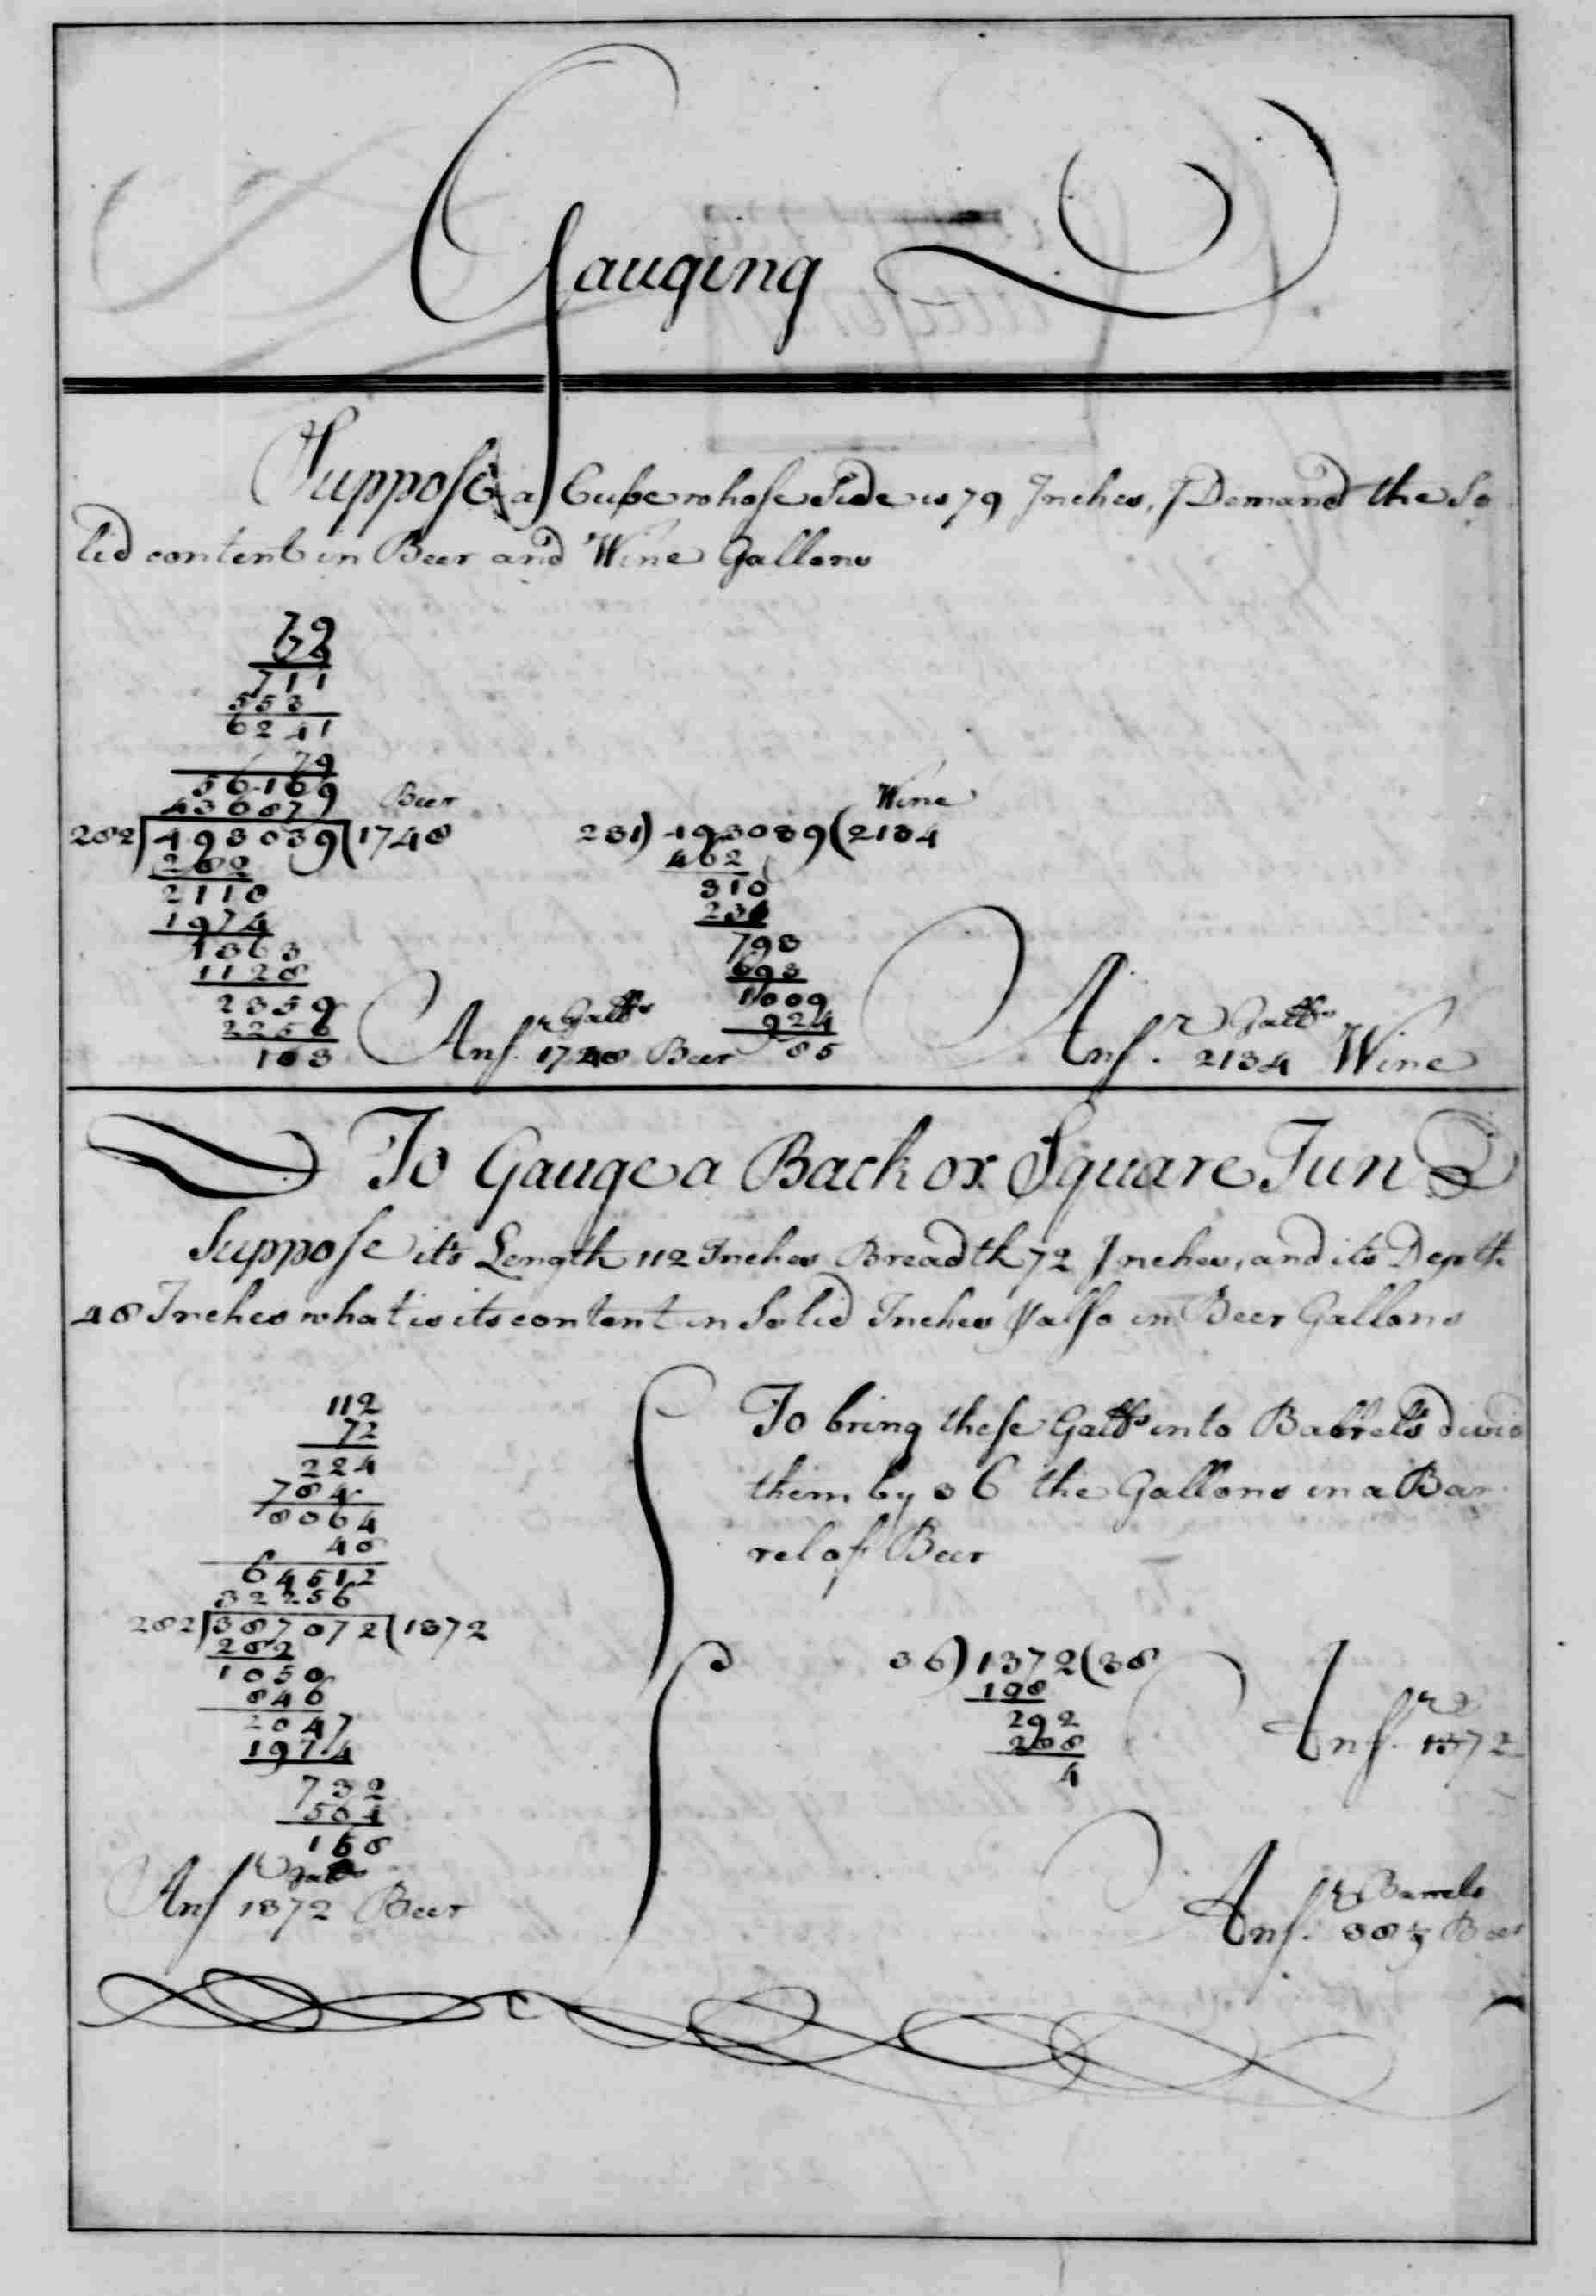 Gauging
Suppose a Cube whose Side is 79 Inches, I Demand the So
lid content in Beer and Wine Gallons
79
79
711
553
6241
79
56169
436877
Beer
282 ) 493039 ( 1748
282
2110
1974
1363
1128
2359
2256
103
Ansr. 1748 Galls Beer
Wine
231 ) 493039 ( 2134
462
310
231
793
693
1009
924
85
Ansr. 2134 Galls Wine
To Gauge a Back or Square Tun
Suppose its Length 112 Inches Breadth 72 Inches, and its Depth
48 Inches what is its content in Solid Inches & also in Beer Gallons
112
72
224
784
8064
48
64512
32256
282 ) 387072 ( 1372
282
1050
846
2047
1974
732
564
168
Ansr 1372 Galls Beer
To bring these Galls into Barrels divid
them by 36 the Gallons in a Bar
rel of Beer
36 ) 1372 ( 38
108
292
288
4
Ansr. 1372
Ansr. 38 1/9 Barrels Beer